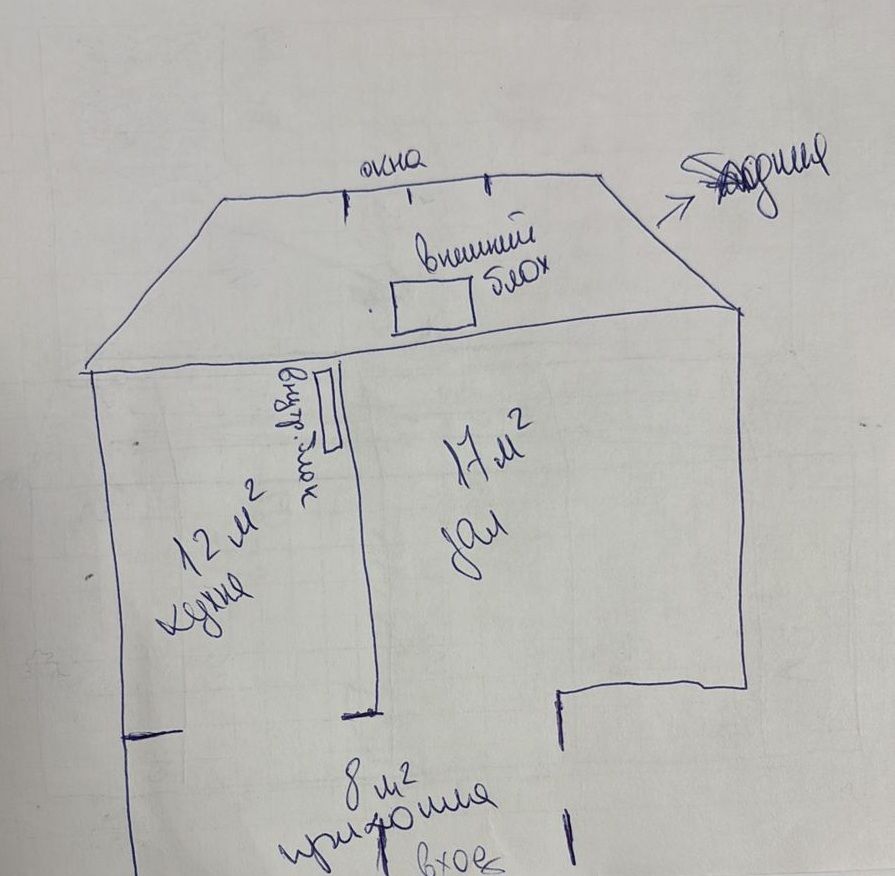 окна
внешний
блок
внутр. блок
17 м²
зал
12 м²
кухня
8 м²
прихожая
вход